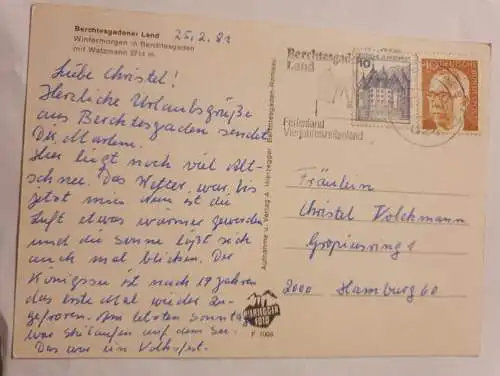 Berchtesgadener Land
Wintermorgen in Berchtesgaden
mit Watzmann 2714 m
25.2.81
Liebe Christel!
Herzliche Urlaubsgrüße
aus Berchtesgaden sendet
Dir
Hier liegt noch viel Alt-
schnee. Das Wetter war bis
jetzt mies. Nun ist die
Luft etwas wärmer geworden
und die Sonne läßt sich
auch mal blicken. Der
Königssee ist nach 19 Jahren
das erste Mal wieder zu-
gefroren. Am letzten Sonntag
war Skilaufen auf dem See.
Das war ein Volksfest.
Aufnahme u. Verlag A. Hierzegger, Berchtesgaden-Ramsau
HIERZEGGER
FOTO
Berchtesgadener
Land
Ferienland
Vierjahreszeitenland
10
40
DEUTSCHE
Fräulein
Christel Volckmann
Gropiusring 1
2000 Hamburg 60